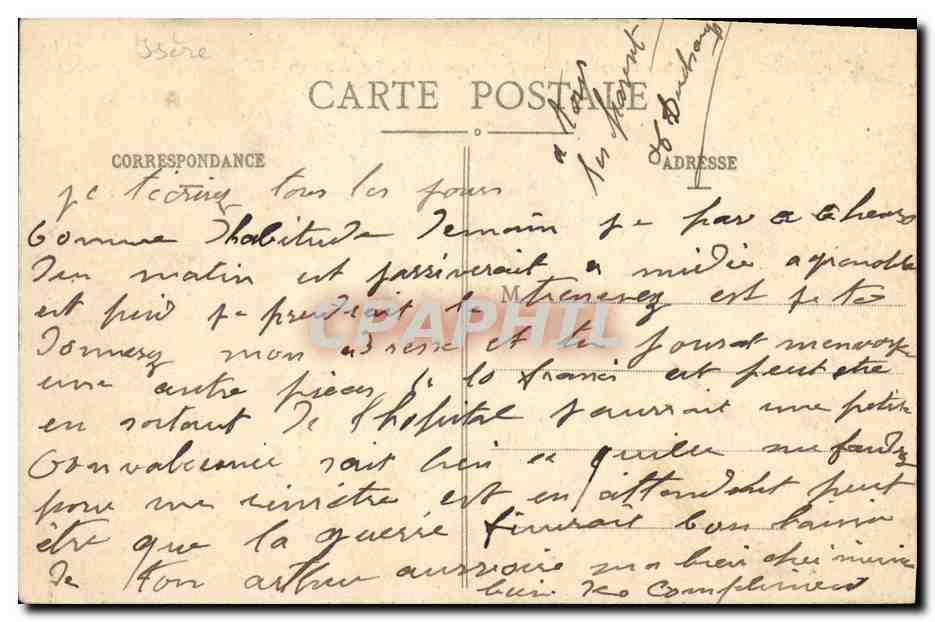 Isère
CARTE POSTALE
CORRESPONDANCE
ADRESSE
a tous
les parent
je técrirez tous les jours
Comme Dhabitude Demain je par a 6 heures
Du matin est jarriverait a midie a grenoble
est puis je prendrait le est je te
M
CPAPHIL
Donnerez mon adresse et tu pourat menvoye
une autre pieces de 10 francs est peut etre
en sortant De lhopital jaurrait une petite
Convalecence sait bien se quil me faudrez
pour me remetre est en attendant peut
être que la guerre finirait bon baisé
De ton arthur aurevoire ma bien cheri
bien des compliment